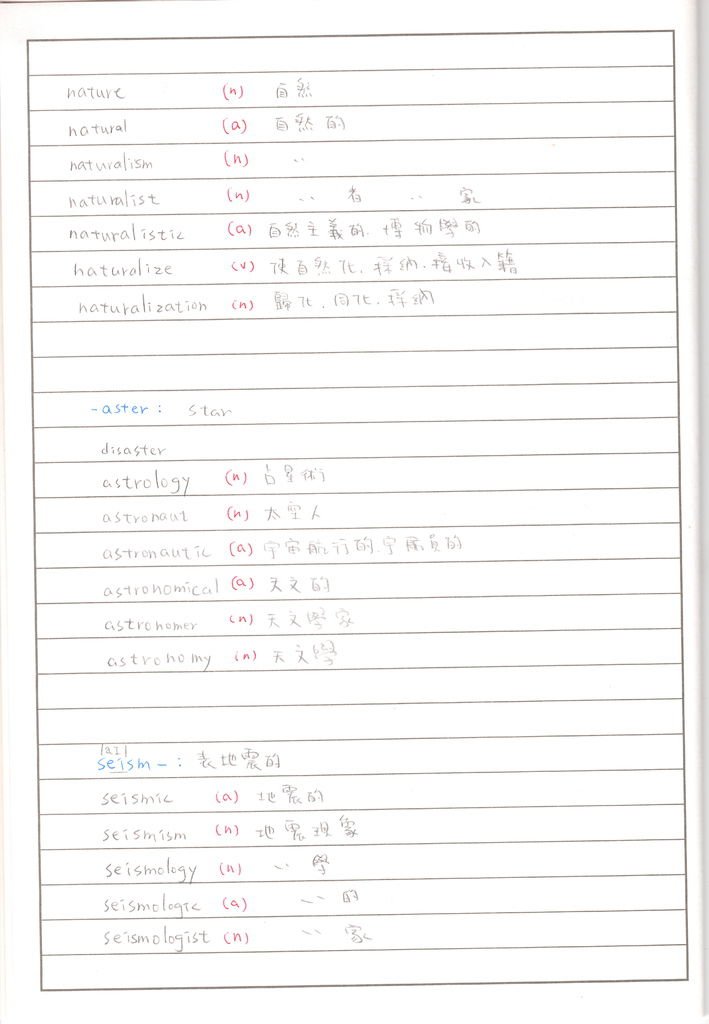 nature (n) 自然
natural (a) 自然的
naturalism (n) 〃
naturalist (n) 〃 者 〃 家
naturalistic (a) 自然主義的.博物學的
naturalize (v) 使自然化.採納.接收入籍
naturalization (n) 歸化.同化.採納
-aster: star
disaster
astrology (n) 占星術
astronaut (n) 太空人
astronautic (a) 宇宙航行的.宇航員的
astronomical (a) 天文的
astronomer (n) 天文學家
astronomy (n) 天文學
/aɪ/
seism-: 表地震的
seismic (a) 地震的
seismism (n) 地震現象
seismology (n) 〃 學
seismologic (a) 〃 的
seismologist (n) 〃 家